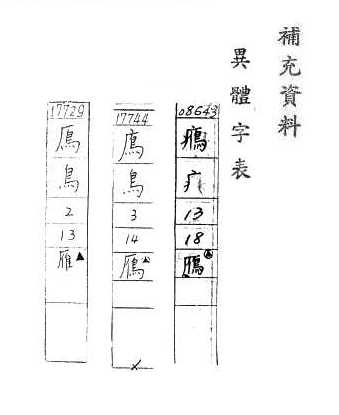 補充資料
異體字表
08643
疒
13
18
17744
鳥
3
14
鴈▲
17729
鳫
鳥
2
13
雁▲